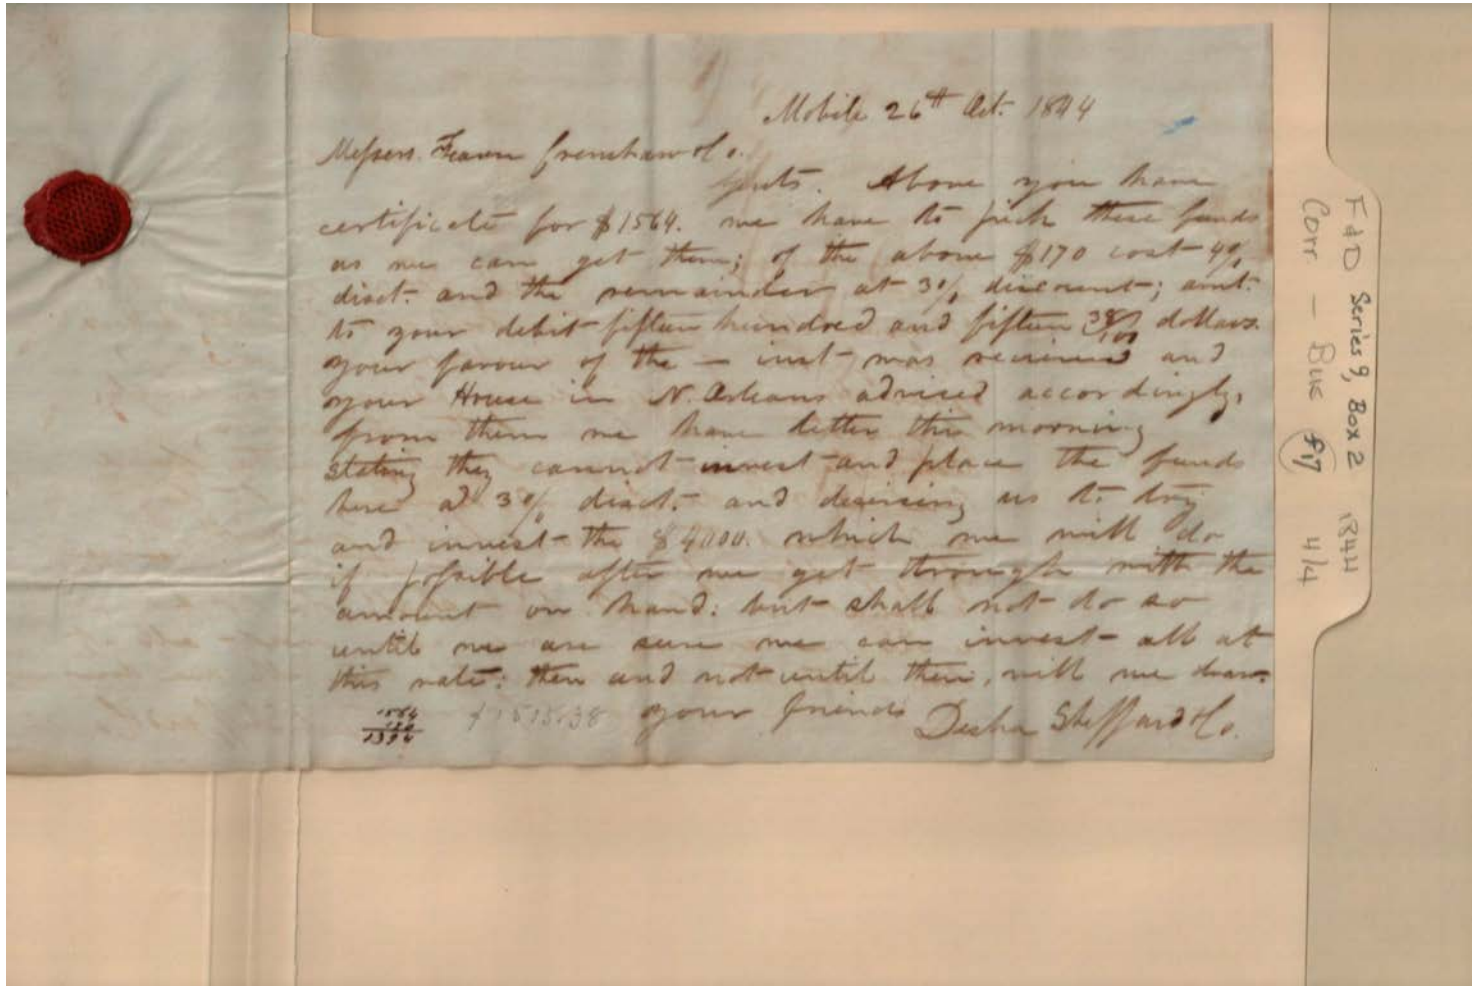 Mobile 26th Oct. 1844
Messers. Fearn Crenshaw & Co.
Gents. Above you have
certificate for $1564. we have to pick these funds
as we can get them; of the above $170 cost 4%
disct. and the remainder at 3% discount; amt.
to your debit fifteen hundred and fifteen 38/100 dollars.
your favour of the — inst was received and
your House in N. Orleans advised accordingly,
from them we have letter this morning
stating they cannot invest and place the funds
here at 3% disct. and desiring us to try
and invest the $4000. which we will do
if possible after we get through with the
amount on hand: but shall not do so
until we are sure we can invest all at
this rate: then and not until then, will we draw.
your friends
Desha Sheppard & Co.
1564
170
1394
$1515.38
F&D Series 9, Box 2 1844
Corr. — Bus f17 4/4